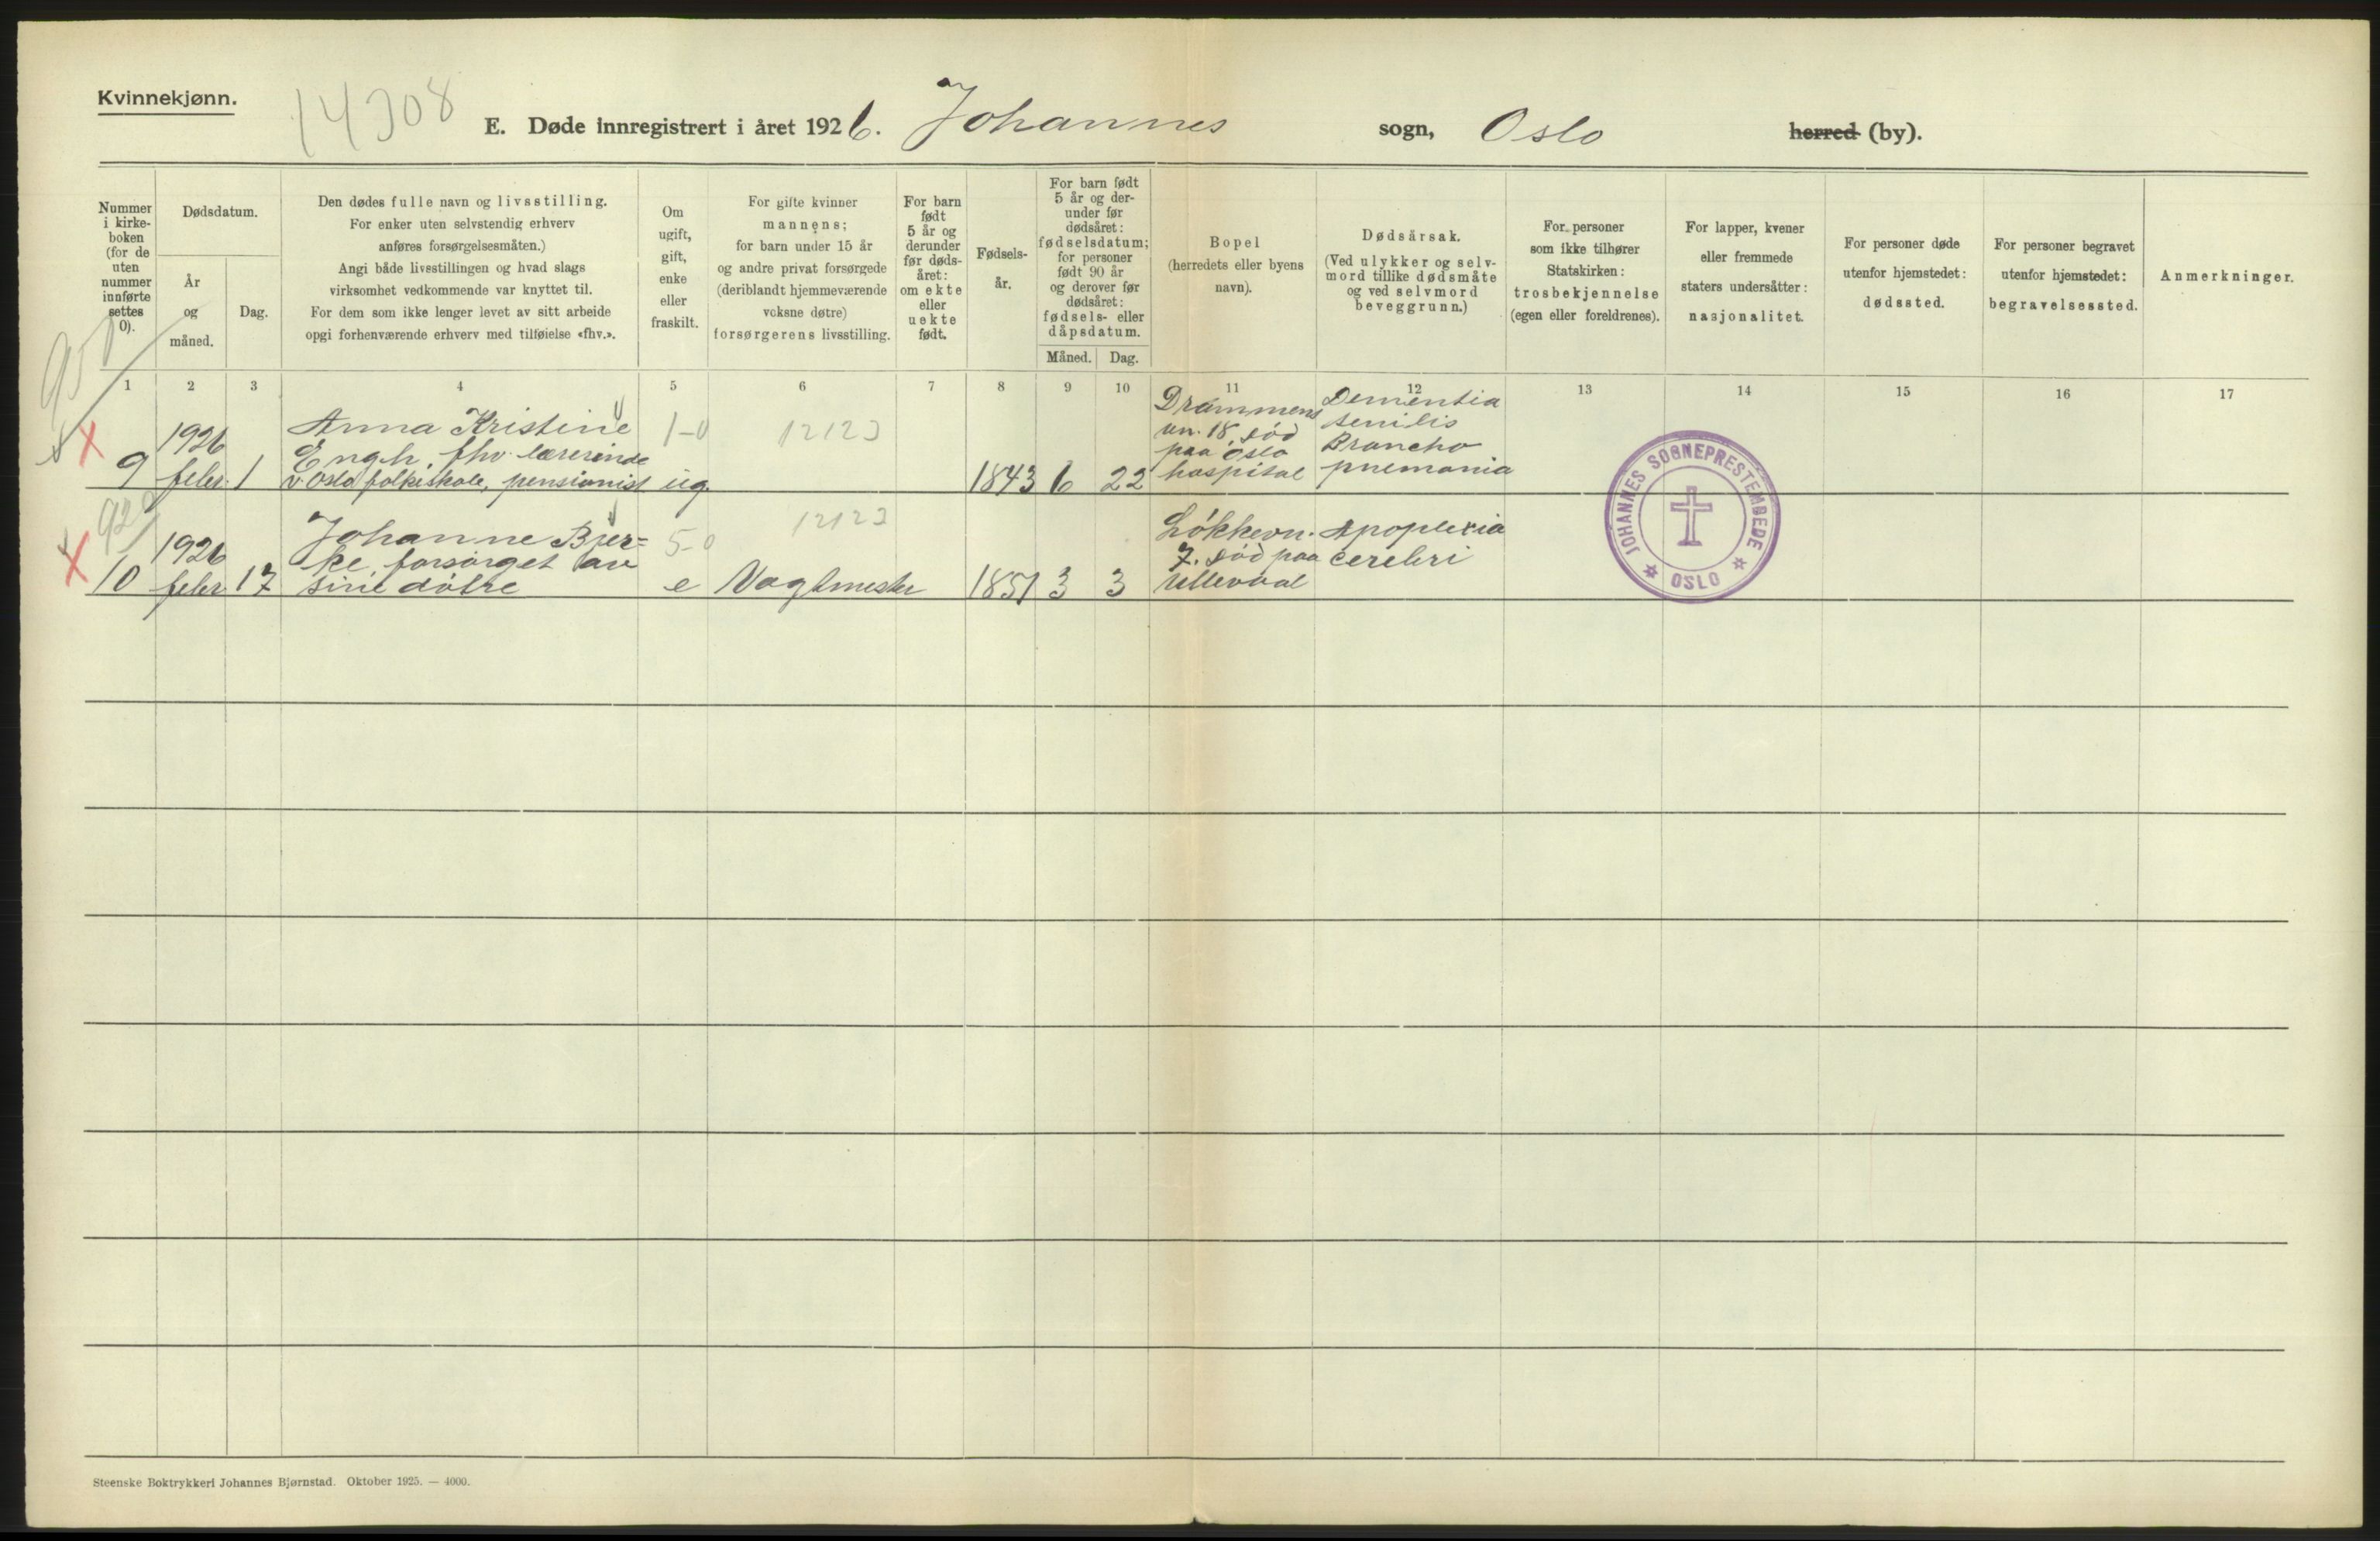 Kvinnekjønn.
14308
E. Døde innregistrert i året 1926. Johannes sogn, Oslo herred (by).
Nummer
i kirke-
boken
(for de
uten
nummer
innførte
settes
0).
Dødsdatum.
År
og
måned.
Dag.
Den dødes fulle navn og livsstilling.
For enker uten selvstendig erhverv
anføres forsørgelsesmåten.)
Angi både livsstillingen og hvad slags
virksomhet vedkommende var knyttet til.
For dem som ikke lenger levet av sitt arbeide
opgi forhenværende erhverv med tilføielse «fhv.».
Om
ugift,
gift,
enke
eller
fraskilt.
For gifte kvinner
mannens;
for barn under 15 år
og andre privat forsørgede
(deriblandt hjemmeværende
voksne døtre)
forsørgerens livsstilling.
For barn
født
5 år og
derunder
før døds-
året:
om ekte
eller
uekte
født.
Fødsels-
år.
For barn født
5 år og der-
under før
dødsåret:
fødselsdatum;
for personer
født 90 år
og derover før
dødsåret:
fødsels- eller
dåpsdatum.
Måned. Dag.
Bopel
(herredets eller byens
navn).
Dødsårsak.
(Ved ulykker og selv-
mord tillike dødsmåte
og ved selvmord
beveggrunn.)
For personer
som ikke tilhører
Statskirken:
trosbekjennelse
(egen eller foreldrenes).
For lapper, kvener
eller fremmede
staters undersåtter:
nasjonalitet.
For personer døde
utenfor hjemstedet:
dødssted.
For personer begravet
utenfor hjemstedet:
begravelsessted.
Anmerkninger.
1 2 3 4 5 6 7 8 9 10 11 12 13 14 15 16 17
9
1926
febr. 1
Anna Kristine
Engh, fhv. lærerinde
v. Oslo folkeskole, pensionist
1-0
ug.
12123
1843 6 22
Drammens
vn. 18, död
paa Oslo
hospital
Dementia
senilis
Broncho
pnemonia
10
1926
febr. 17
Johanne Bjer=
ke, forsörget av
sine dötre
5-0
e
12123
Vagtmester
1851 3 3
Lökkevn.
7. död paa
Ullevaal
Apoplexia
cerebri
JOHANNES SOGNEPRESTEMBEDE
OSLO
Steenske Boktrykkeri Johannes Bjørnstad. Oktober 1925. — 4000.